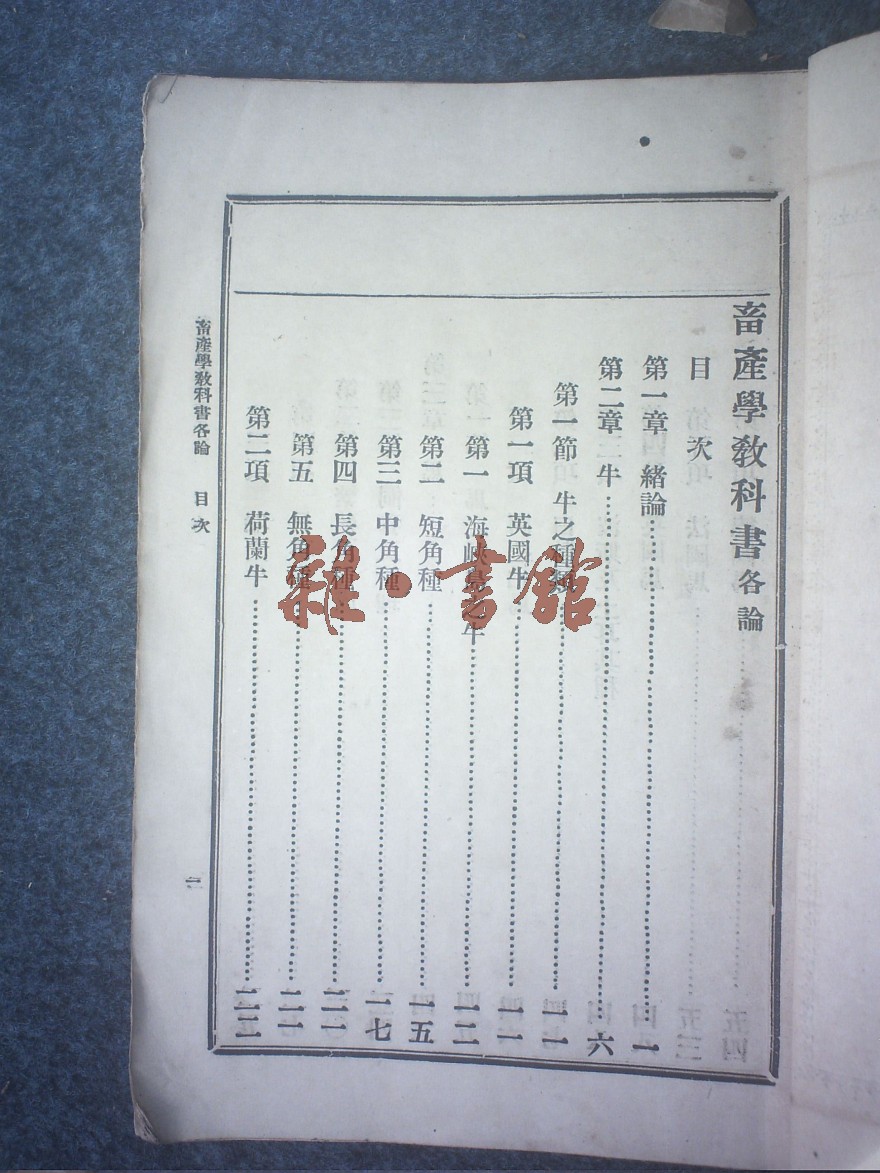 畜產學教科書各論
目次
第一章 緒論……一
第二章 牛……六
第一節 牛之種類……一一
第一項 英國牛……一一
第一 海峽島之牛……一二
第二 短角種……一五
第三 中角種……一七
第四 長角種……二一
第五 無角種……二一
第二項 荷蘭牛……二二
畜產學教科書各論 目次
雜·書館